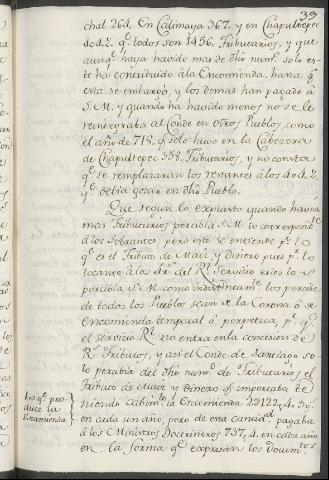 39
chal 261. En Calimaya 367. y en Chapultepec
404.½. qe. todos son 1456. Tributarios, y que
aunqe. haya havido mas de dho numo. solo es-
te ha contribuido à la Encomienda, hasta qe.
esta se embargò, y los demas han pagado à
S. M. y quando ha havido menos no se le
reintegraba al Conde en otros Pueblos, como
el año de 718. qe. solo huvo en la Cabezera
de Chapultepec 358. Tributarios, y no consta
qe. se remplazaran los restantes à los 404.½.
qe. debia gozar en dho. Pueblo.
Que segun lo expuesto quando havia
mas Tributarios percibia S. M. lo correspondte.
à los Sobrantes, pero esto se entiende pr. lo
qe. es el Tributo de Maiz, y Dinero pues pr. lo
tocante à los drs. del Rl. Servicio estos los
percibia S. M. como indistintamte. los percibe
de todos los Pueblos sean de la Corona ò de
Encomienda temporal ò perpetua, pr. qe.
el servicio Rl. no entra en la concesion de
Rs. Tributos, y asi el Conde de Santiago so-
lo percibia del dho numo. de Tributarios, el
Tributo de Maiz y Dinero qe. importaba te-
niendo Cabimto. la Encomienda 2ɔ122,, 4. 3os.
en cada un año, pero de esta cantidd. pagaba
à los Ministros Doctrineros 737,, 4. en cada año
en la forma qe. expresan los Documtos.
Lo qe. pro-
duce la
Encomienda